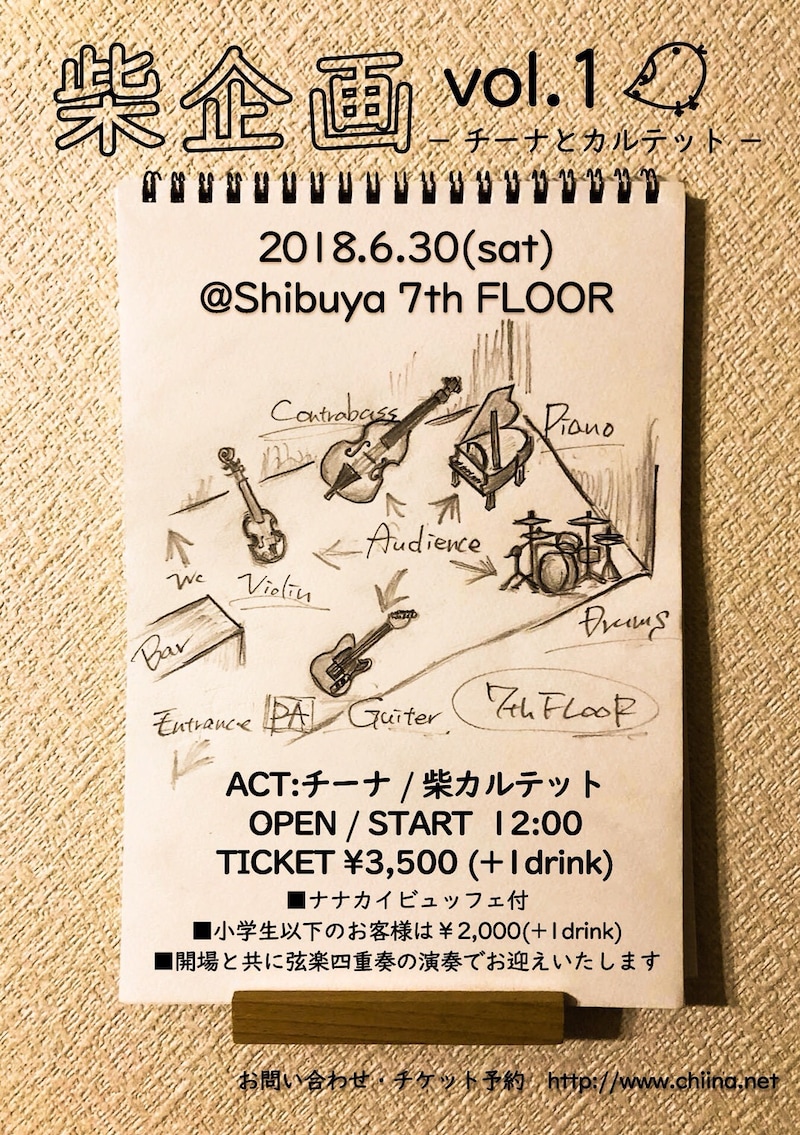 柴企画 vol.1
－ チーナとカルテット －
2018.6.30(sat)
@Shibuya 7th FLOOR
Contrabass
Piano
Audience
Wc
Violin
Drums
Bar
Entrance
PA
Guiter
7th FLooR
ACT:チーナ / 柴カルテット
OPEN / START 12:00
TICKET ¥3,500 (+1drink)
■ナナカイビュッフェ付
■小学生以下のお客様は¥2,000(+1drink)
■開場と共に弦楽四重奏の演奏でお迎えいたします
お問い合わせ・チケット予約 http://www.chiina.net